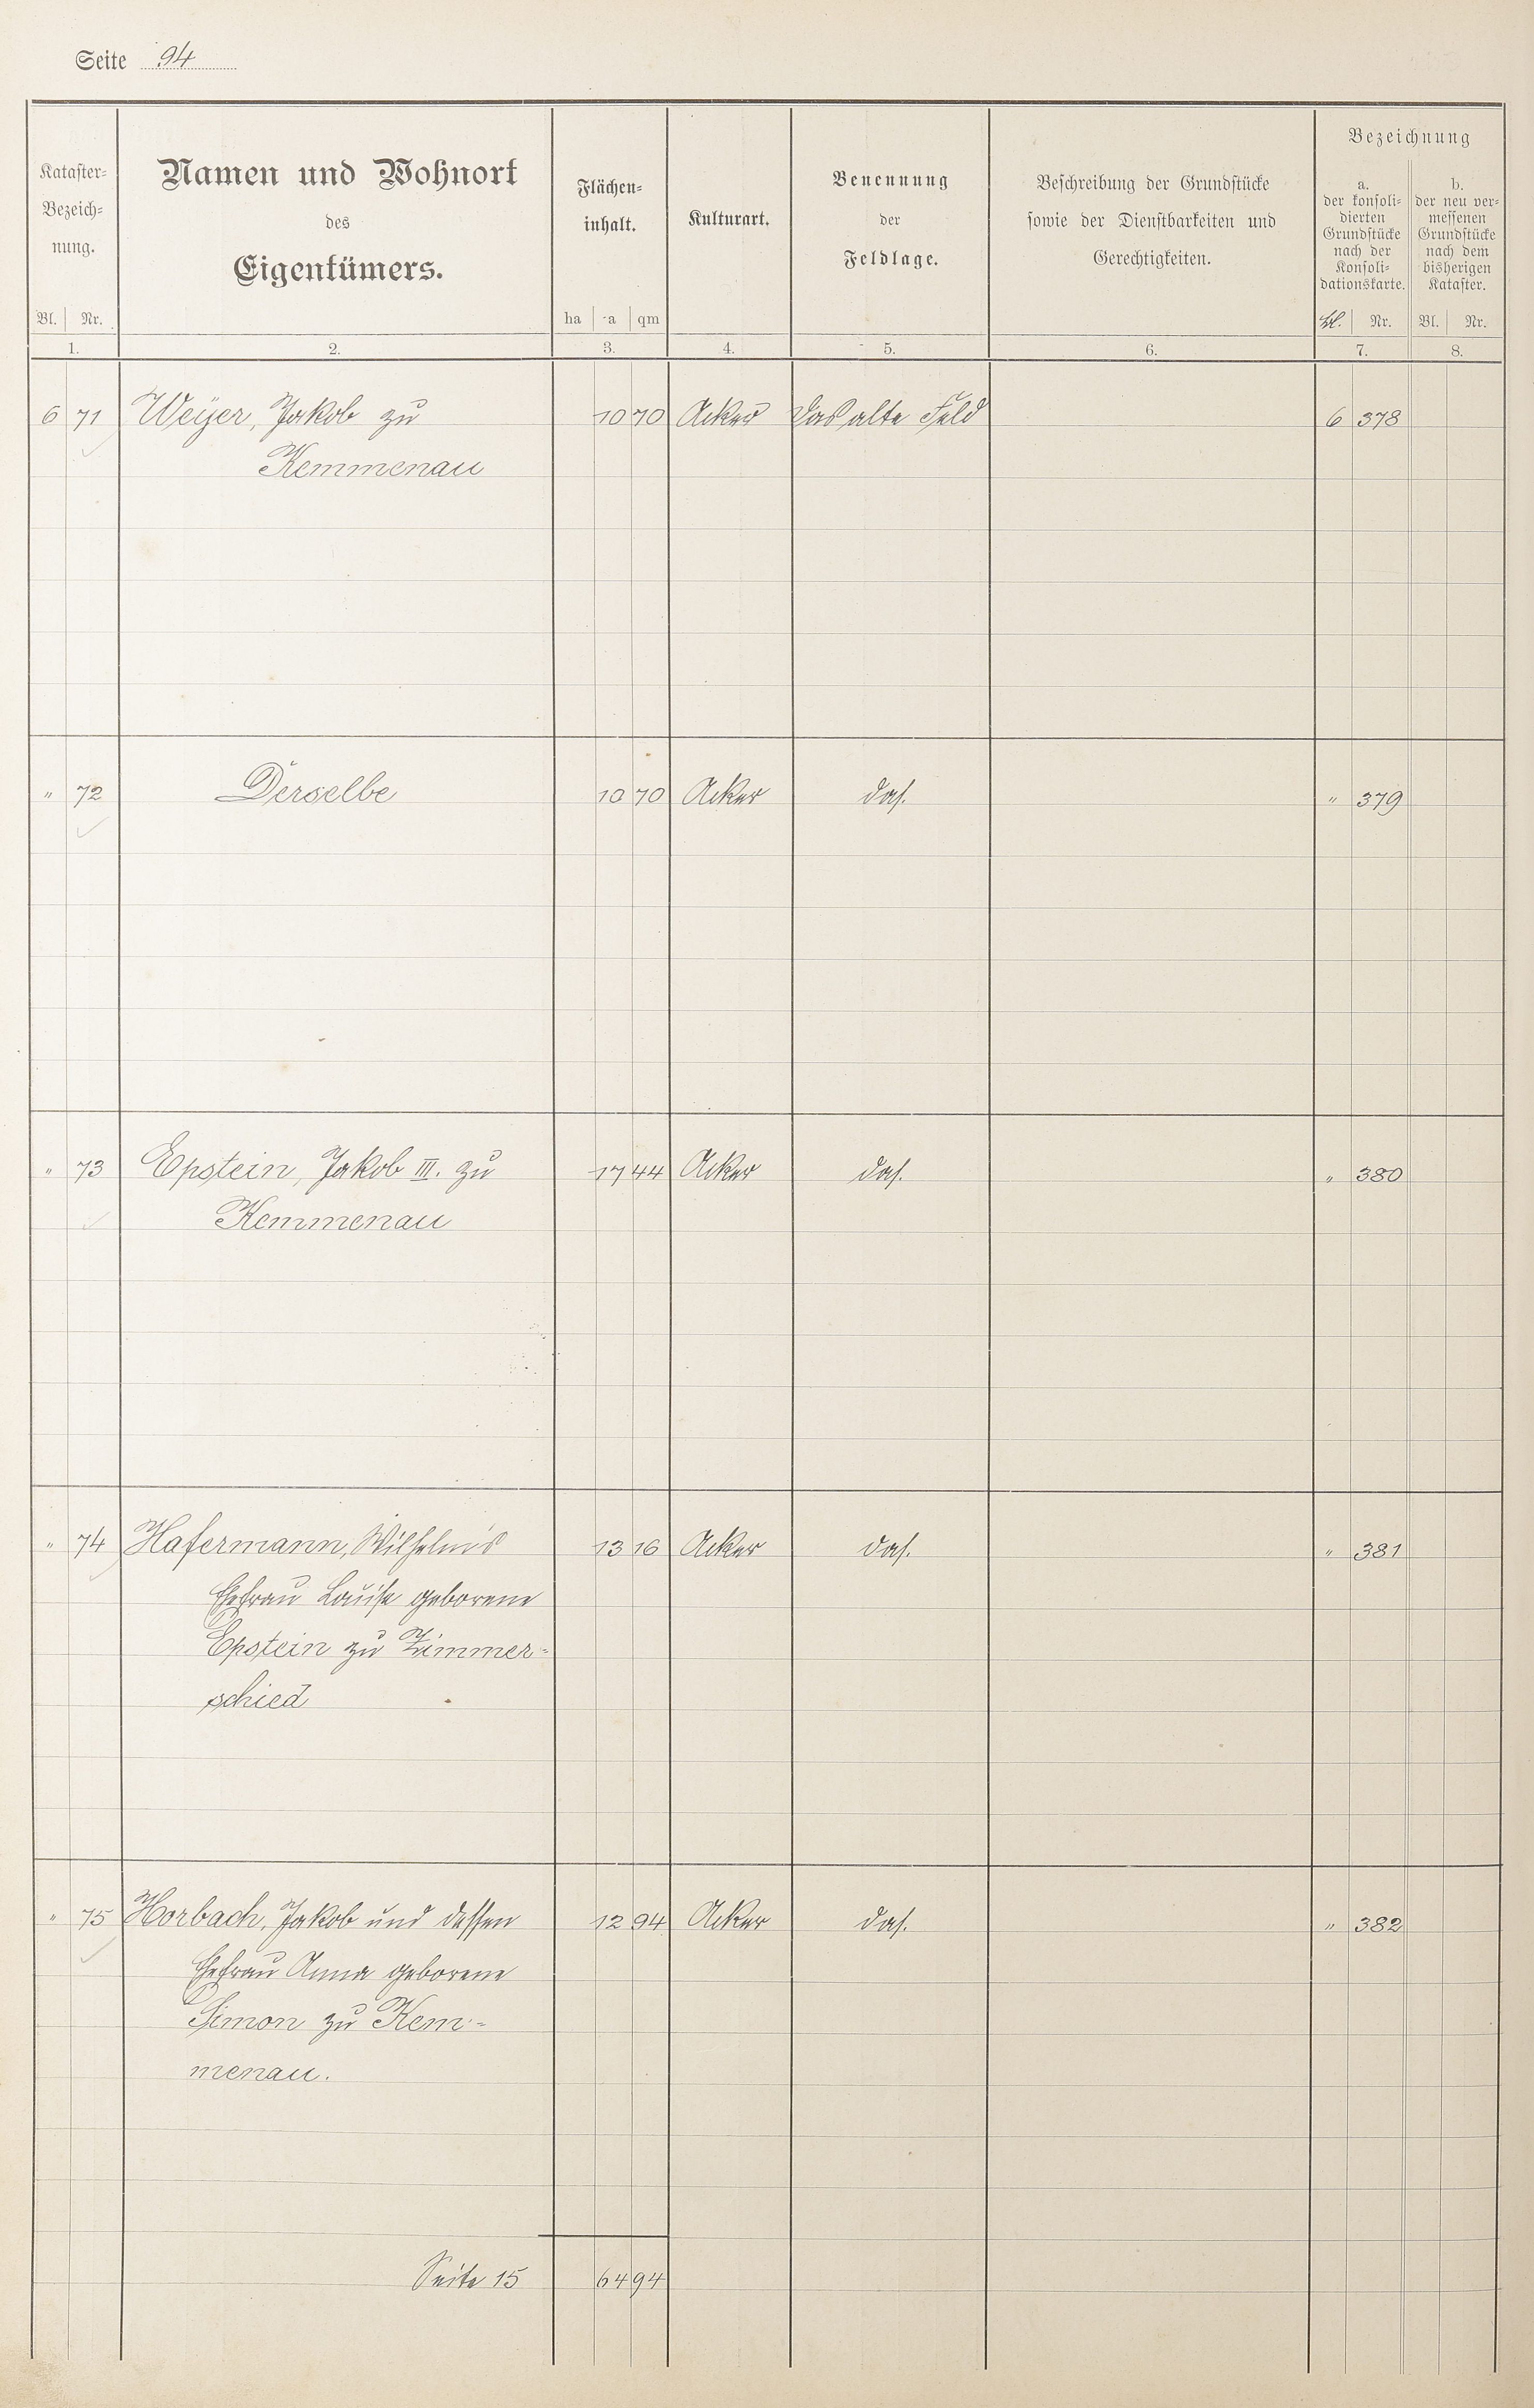 Seite 94
Kataster-
Bezeich-
nung.
Bl. Nr.
1.
Namen und Wohnort
des
Eigentümers.
2.
Flächen-
inhalt.
ha a qm
3.
Kulturart.
4.
Benennung
der
Feldlage.
5.
Beschreibung der Grundstücke
sowie der Dienstbarkeiten und
Gerechtigkeiten.
6.
Bezeichnung
a.
der konsoli-
dierten
Grundstücke
nach der
Konsoli-
dationskarte.
Bl. Nr.
7.
b.
der neu ver-
messenen
Grundstücke
nach dem
bisherigen
Kataster.
Bl. Nr.
8.
6 71 Weyer, Jakob zu 10 70 Acker Das alte Feld 6 378
Kemmenau
" 72 Derselbe 10 70 Acker das. " 379
" 73 Epstein, Jakob III. zu 17 44 Acker das. " 380
Kemmenau
" 74 Hafermann, Wilhelm's 13 16 Acker das. " 381
Ehefrau Louise geborene
Epstein zu Zimmer-
schied
" 75 Horbach, Jakob und dessen 12 94 Acker das. " 382
Ehefrau Anna geborene
Simon zu Kem-
menau.
Seite 15 64 94